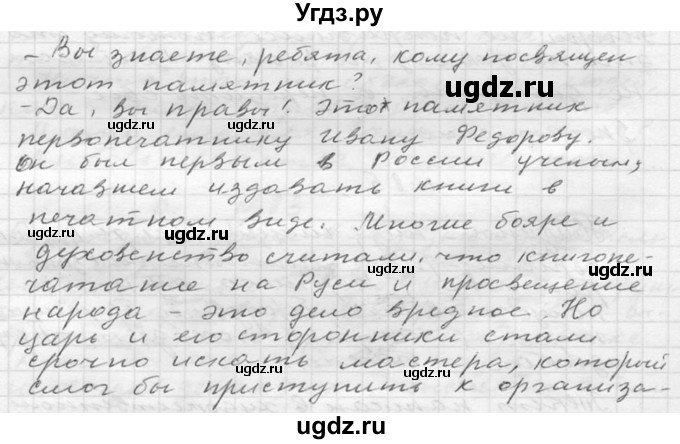 Угдз.ру
- Вы знаете, ребята, кому посвящен
этот памятник?
- Да, вы правы! Этот памятник
первопечатнику Ивану Федорову.
Он был первым в России ученым,
начавшем издавать книги в
печатном виде. Многие бояре и
духовенство считали, что книгопе-
чатание на Руси и просвещение
народа - это дело вредное. Но
царь и его сторонники стали
срочно искать мастера, который
смог бы приступить к организа-
ugdz.ru
ugdz.ru
ugdz.ru
ugdz.ru
ugdz.ru
ugdz.ru
ugdz.ru
ugdz.ru
ugdz.ru
ugdz.ru
ugdz.ru
ugdz.ru
ugdz.ru
ugdz.ru